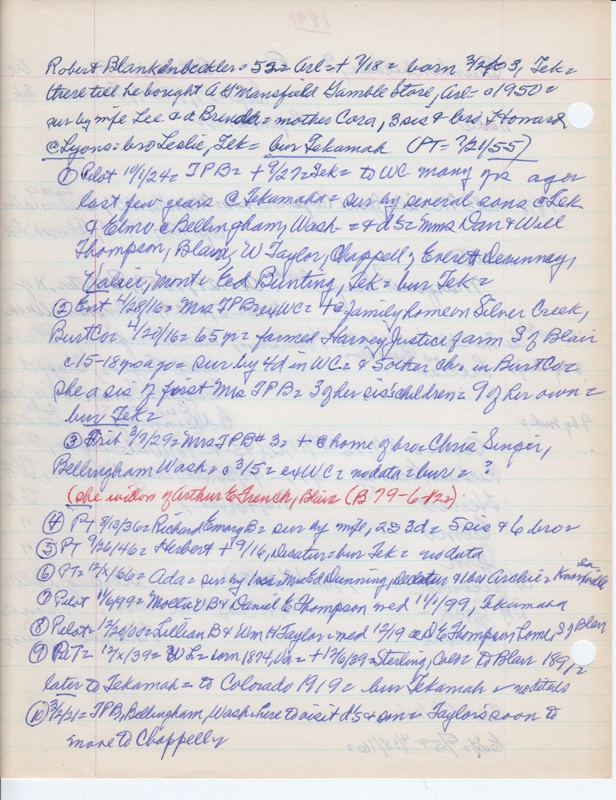 1891
Robert Blankenbeckler = 53 = Arl = + 7/18 = born 3, Tek =
there till he bought A Mansfield Gamble Store, Arl = a 1950 =
sur by wife Lee & d Brenda = mother Cora, 3 sis & bro Howard
c Lyons = bro Leslie, Tek = bur Tekamah (PT = 7/21/55)
① Pilot 10/1/24 = TPB = + 9/27 = Tek = to WC many yrs ago =
last few years c Tekamah = sur by several sons c Tek
& Elmo c Bellingham, Wash = & d's = Mmes Dan & Will
Thompson, Blair, W Taylor, Chappell, Everett Devinney,
Valier, Mont & Ed Bunting, Tek = bur Tek =
② Ent 4/28/16 = Mrs TPB = ex WC = + c family home on Silver Creek,
Burt Co = 4/20/16 = 65 yr = farmed Harvey Justice farm S of Blair
c 15-18 yrs ago = sur by 4 d in WC = & 5 other chs in Burt Co =
she a sis of first Mrs TPB = 3 of her sis's children = 9 of her own =
bur Tek =
③ 3/7/29 = Mrs TPB #3 = + c home of bro = Chris Singer,
Bellingham Wash = a 3/5 = ex WC = no data = bur = ?
(she widow of Arthur E French, Blair (B 79-6 & 22)
④ PT 8/13/36 = Richard Emory B = sur by wife, 2s 3d = 5 sis & 6 bro =
⑤ PT 9/26/46 = Herbert + 9/16, Decatur = bur Tek = no data
⑥ PT = 12/x/66 = Ada = sur by sis = Mrs Ed Dunning, Decatur & bro Archie =
⑦ Pilot 11/6/99 = Mollie B & Daniel E Thompson med 11/1/99, Tekamah
⑧ Pilot = 12/20/00 = Lillian B & Wm H Taylor = med 12/19 c D E Thompson home, S of Blair
⑨ P&T = 12/x/39 = W L = born 1874, Va = + 12/6/39 = Sterling, Colo = to Blair
later to Tekamah = to Colorado 1919 = bur Tekamah = no details
⑩ 3/2/21 = TPB, Bellingham, Wash = here to visit d's & son = Taylors soon to
move to Chappell